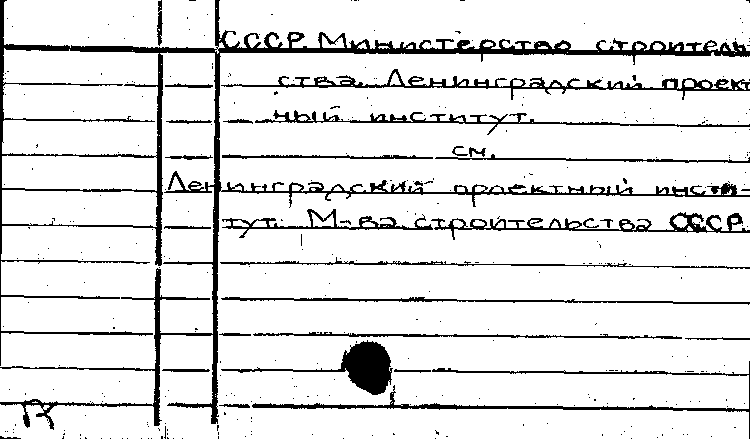 СССР. Министерство строитель
ства. Ленинградский проект
ный институт.
см.
Ленинградский проектный инсти-
тут. М-ва строительства СССР.